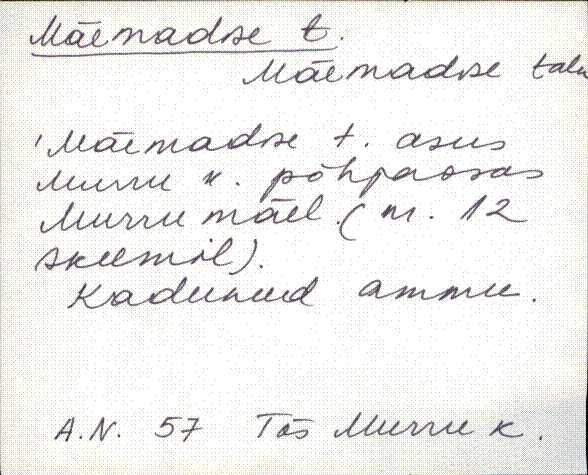 Mäemadse t.
Mäemadse talu
'Mäemadse t. asus
Murru k. põhjaosas
Murru mäel. (nr. 12
skeemil).
Kadunud ammu.
A.N. 57 Tõs Murru k.